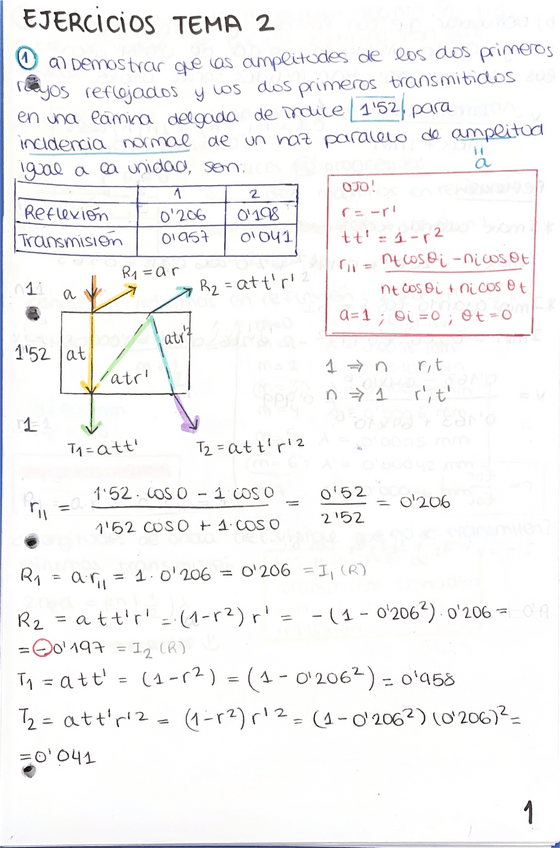 EJERCICIOS TEMA 2
① a) Demostrar que las amplitudes de los dos primeros
rayos reflejados y los dos primeros transmitidos
en una lámina delgada de índice 1'52, para
incidencia normal de un haz paralelo de amplitud
igual a la unidad, son:
a
1 2
Reflexión 0'206 0'198
Transmisión 0'957 0'041
OJO!
r = -r'
tt' = 1-r²
r∥ = (nt cos θi - ni cos θt) / (nt cos θi + ni cos θt)
a=1 ; θi=0 ; θt=0
1
a
R₁ = ar
R₂ = att'r'
1'52
at
atr'
atr'²
1
T₁ = att'
T₂ = att'r'²
1 ⇒ n r,t
n ⇒ 1 r',t'
r∥ = (1'52 · cos 0 - 1 cos 0) / (1'52 cos 0 + 1 · cos 0) = 0'52 / 2'52 = 0'206
R₁ = a·r∥ = 1 · 0'206 = 0'206 = I₁(R)
R₂ = att'r' = ·(1-r²) r' = -(1-0'206²)·0'206 =
= -0'197 = I₂(R)
T₁ = att' = (1-r²) = (1-0'206²) = 0'958
T₂ = att'r'² = (1-r²)r'² = (1-0'206²)(0'206)² =
= 0'041
1